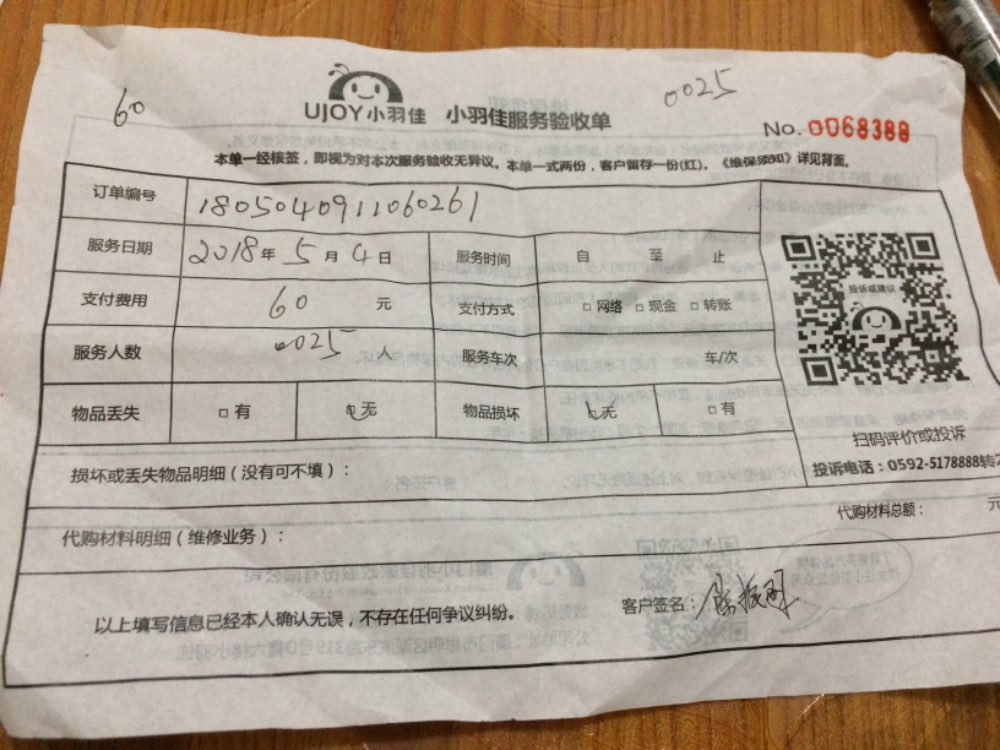 60
0025
UJOY小羽佳 小羽佳服务验收单
No. 0068388
本单一经核签，即视为对本次服务验收无异议。本单一式两份，客户留存一份(红)。《维保须知》详见背面。
订单编号 1805040911060261
服务日期 2018年5月4日 服务时间 自 至 止
支付费用 60 元 支付方式 □网络 □现金 □转账
服务人数 0025 人 服务车次 车/次
物品丢失 □有 □无 物品损坏 □无 □有
投诉或建议
扫码评价或投诉
投诉电话：0592-5178888转2
损坏或丢失物品明细（没有可不填）：
代购材料明细（维修业务）：
代购材料总额： 元
以上填写信息已经本人确认无误，不存在任何争议纠纷。
客户签名：